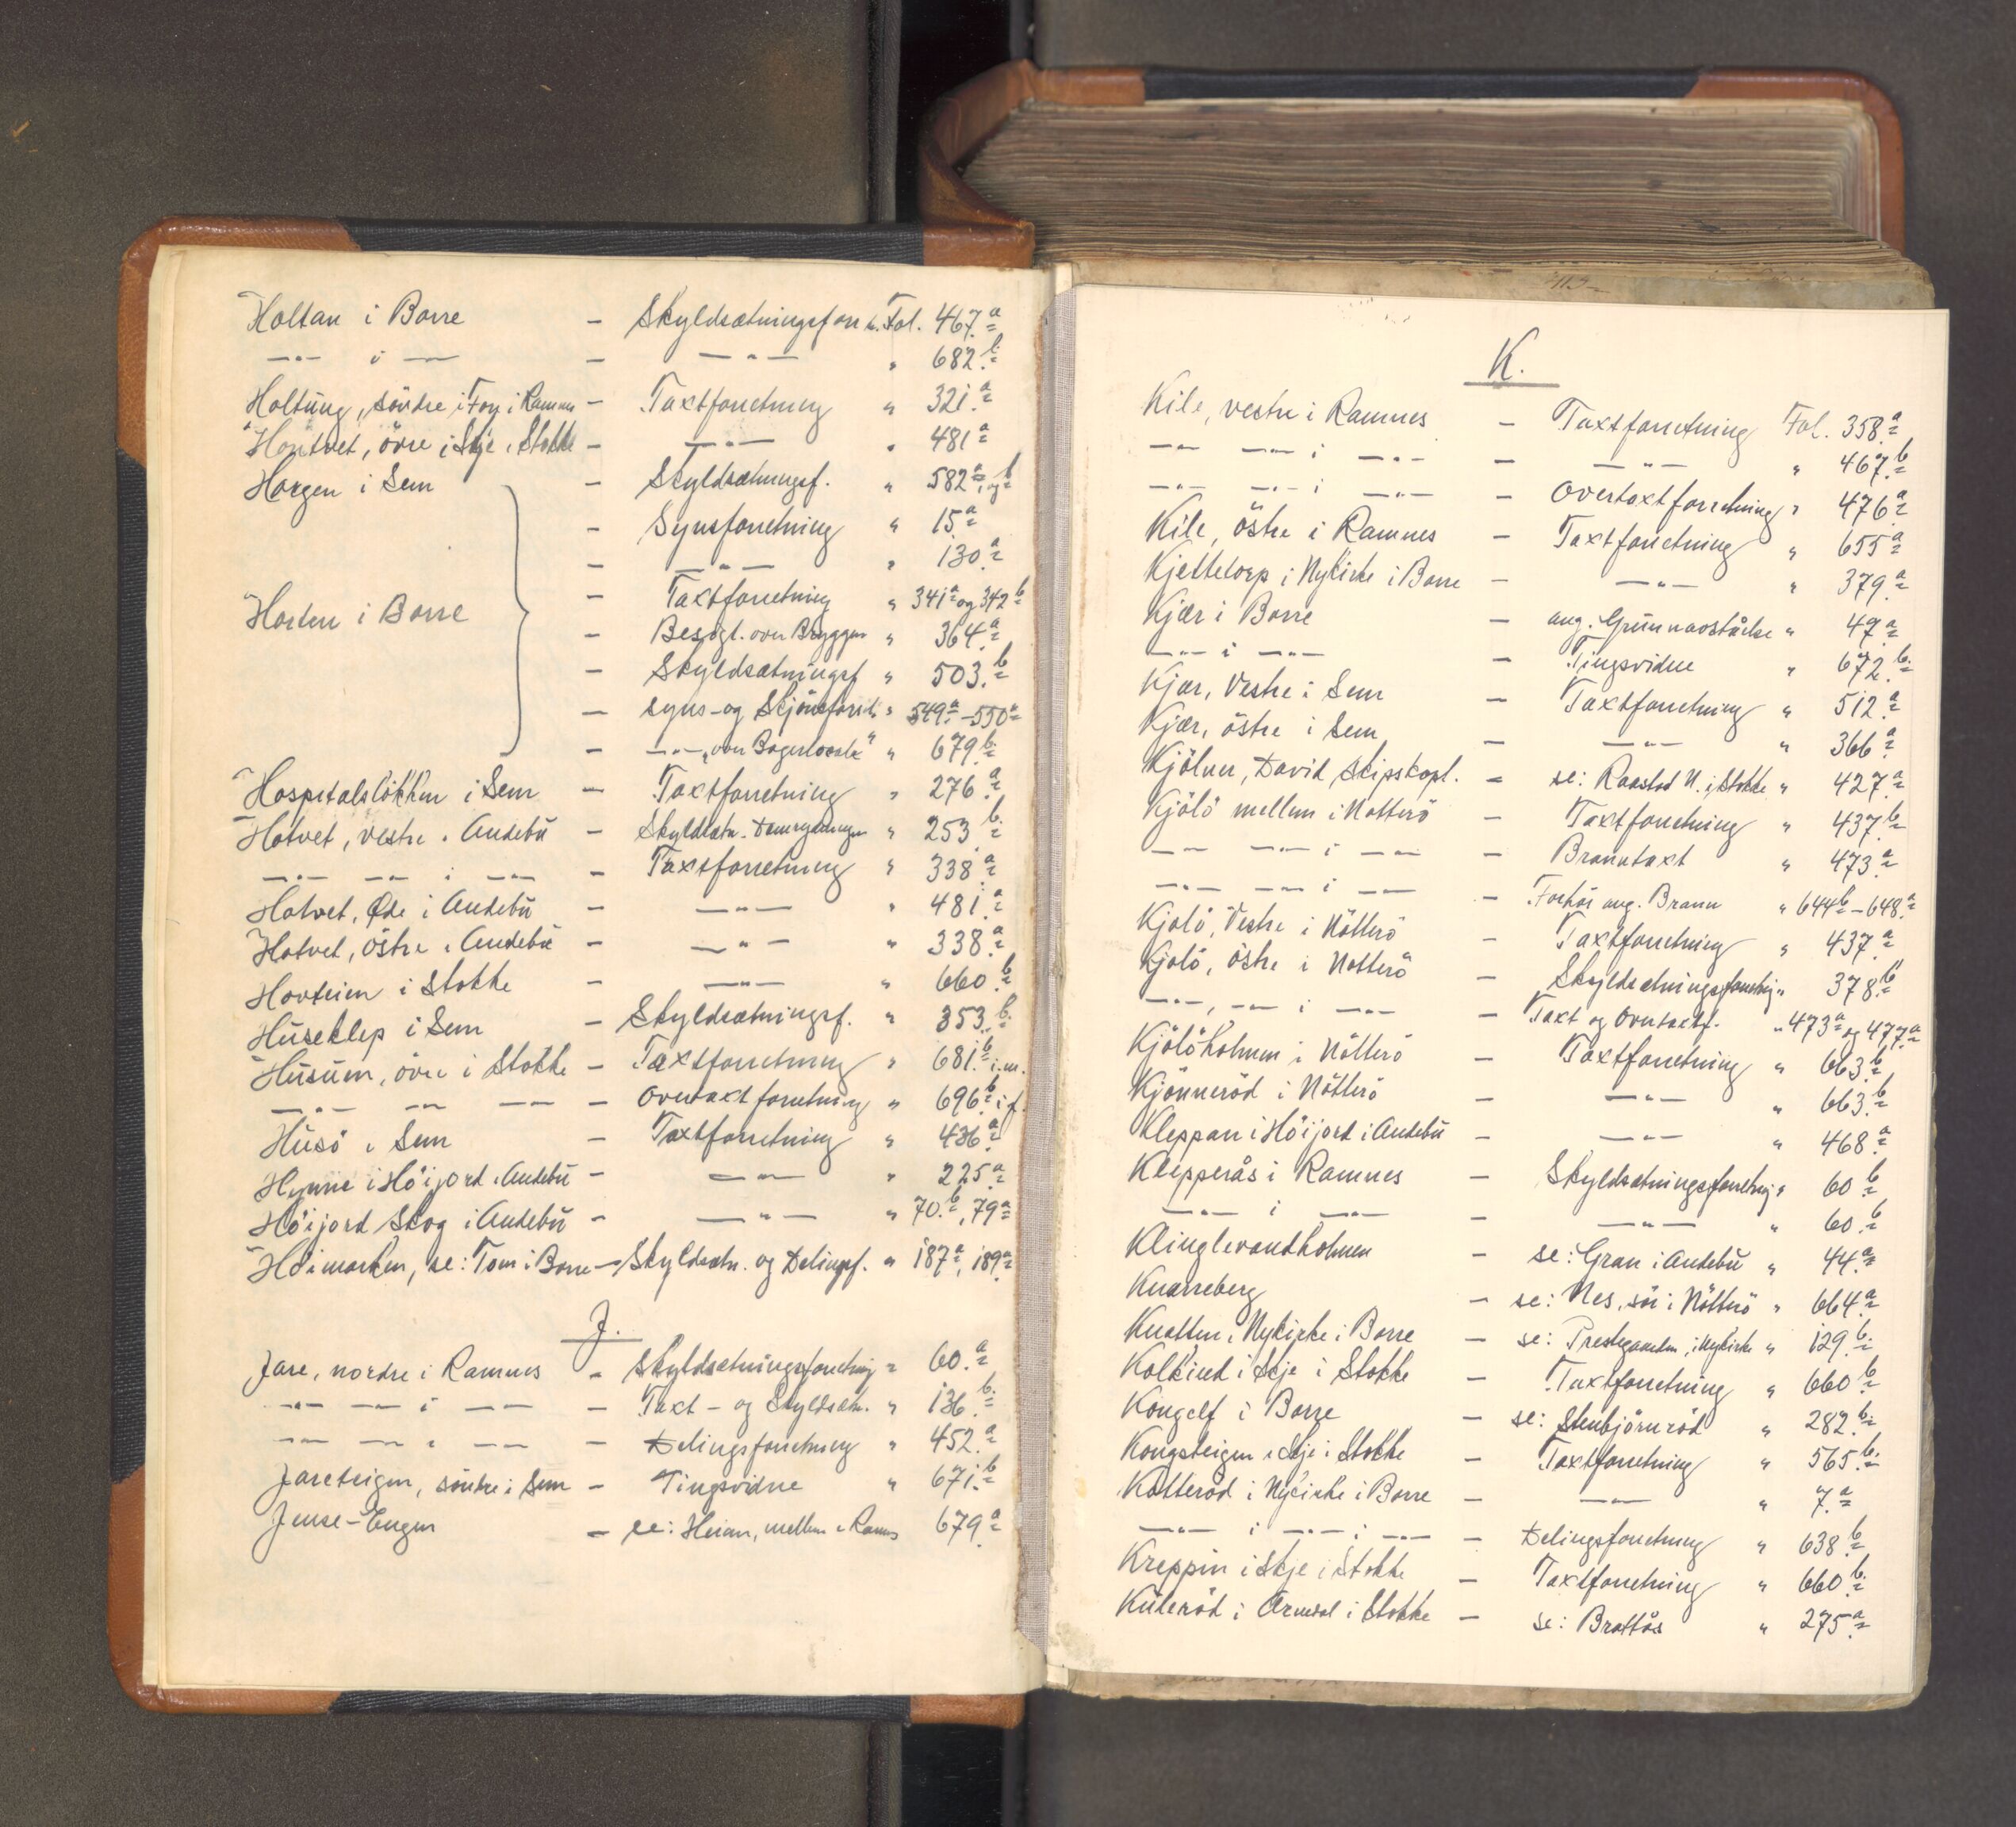 Holtan i Borre – Skyldsætningsforr. Fol. 467.a
—"— i — – —"— " 682.b
Holtung, söndre i Fon i Ramnes – Taxtforretning " 321.a
Hontvet, övre i Skje i Stokke – —"— " 481a
Horgen i Sem – Skyldsætningsf. " 582a og b
– Synsforretning " 15.a
– —"— " 130.a
Horten i Borre – Taxtforretning " 341a og 342b
– Besigt. over Bryggen " 364.a
– Skyldsætningsf " 503.b
– Syns- og Skjönsforr. " 549a–550a
– —"— „over Bagerlocale" " 679b.
Hospitalslökken i Sem – Taxtforretning " 276.a
Hotvet, vestre i Andebu – Skyldsætn. " 253.b
—"— — i — – Taxtforretning " 338.a
Hotvet, Øde i Andebu – —"— " 481.a
Hotvet, östre i Andebu – —"— " 338.a
Hovteien i Stokke – —"— " 660.b
Huseklep i Sem – Skyldsætningsf. " 353.b.
Husum, övre i Stokke – Taxtforretning " 681.b i.m.
—"— — — – Overtaxtforretning " 696.b i f.
Husö i Sem – Taxtforretning " 436.a
Hynne i Höijord i Andebu – —"— " 225.a
Höijord Skog i Andebu – —"— " 70.b, 79a
Höimarken, se: Tom i Borre – Skyldsætn. og Delingsf. " 187a, 189a
J.
Jare, nordre i Ramnes – Skyldsætningsforretning " 60.a
—"— — i — – Taxt- og Skyldsætn. " 136.b.
—"— — i — – Delingsforretning " 452.a
Jareteigen, söndre i Sem – Tingsvidne " 671.b
Jense-Engen – se: Heian, mellem i Ramnes 679.a
K.
Kile, vestre i Ramnes – Taxtforretning Fol. 358.a
—"— —"— i —"— – —"— " 467.b
—"— —"— i —"— – Overtaxtforretning " 476a
Kile, östre i Ramnes – Taxtforretning " 655a
Kjettetorp i Nykirke i Borre – —"— " 379.a
Kjær i Borre – ang. Grunnavståelse " 49.a
—"— i —"— – Tingsvidne " 672.b.
Kjær, Vestre i Sem – Taxtforretning " 512.a
Kjær, östre i Sem – —"— " 366.a
Kjölner, David Skipskapt. – se: Raastad N. i Stokke " 427.a
Kjölö mellem i Nötterö – Taxtforretning " 437.b
—"— —"— i —"— – Branntaxt " 473.a
—"— —"— i —"— – Forhör ang. Brann " 644b–648.a
Kjölö, Vestre i Nötterö – Taxtforretning " 437.a
Kjölö, östre i Nötterö – Skyldsætningsforretning " 378.b
—"—, —"— i —"— – Taxt og Overtaxtf. " 473a og 477.a
Kjölöholmen i Nötterö – Taxtforretning " 663.b
Kjönneröd i Nötterö – —"— " 663.b
Kleppan i Höijord i Andebu – —"— " 468.a
Klepperås i Ramnes – Skyldsætningsforretning " 60.b
—"— i —"— – —"— " 60.b
Klinglevandholmen – se: Gran i Andebu " 44.a
Knarreberg – se: Nes, sör i Nötterö " 664.a
Knatten i Nykirke i Borre – se: Prestegaarden i Nykirke " 129.b.
Kolkind i Skje i Stokke – Taxtforretning " 660.b
Kongelf i Borre – se: Stenbjörnröd " 282.b.
Kongsteigen i Skje i Stokke – Taxtforretning " 565.b.
Kotteröd i Nykirke i Borre – —"— " 7.a
—"— i —"— i —"— – Delingsforretning " 638.b
Kreppin i Skje i Stokke – Taxtforretning " 660.b.
Kuleröd i Arnedal i Stokke – se: Brattås " 275.a